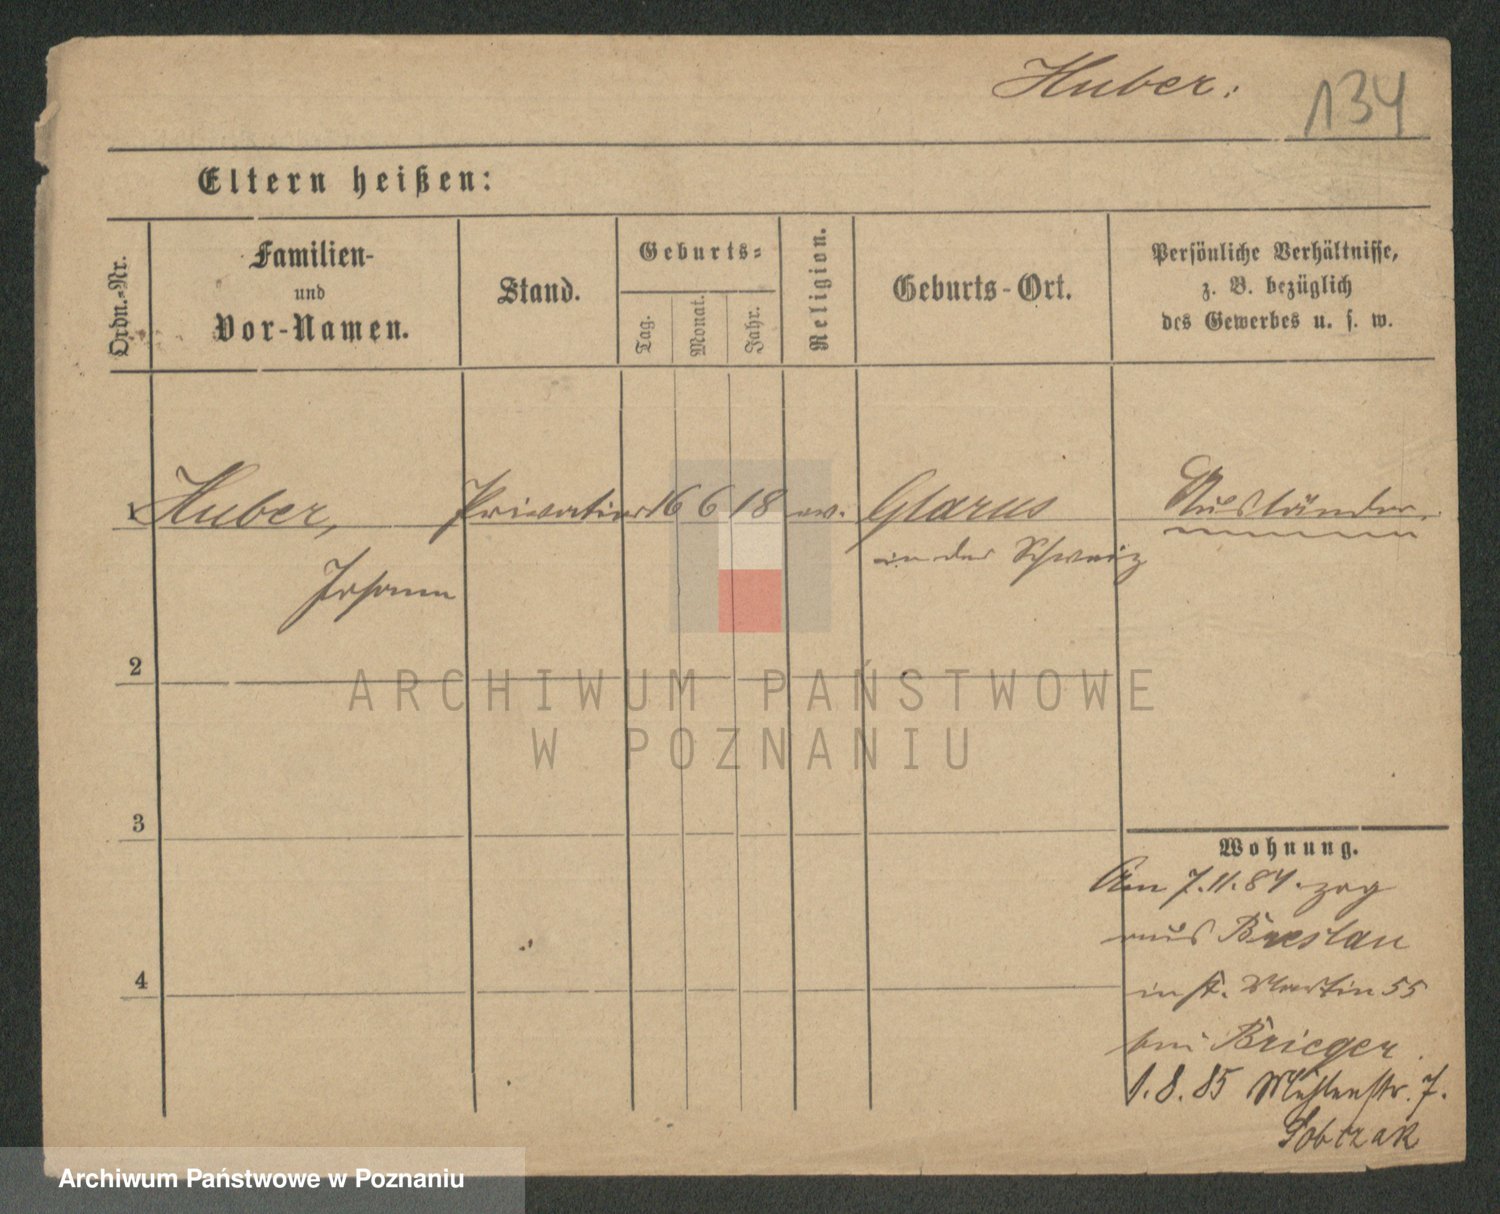 Huber:
134
Eltern heißen:
Ordn.-Nr.
Familien-
und
Vor-Namen.
Stand.
Geburts-
Tag.
Monat.
Jahr.
Religion.
Geburts-Ort.
Persönliche Verhältnisse,
z. B. bezüglich
des Gewerbes u. s. w.
1 Huber, Privatier 16 6 18 ev. Glarus Ausländer.
in der Schweiz
Johann
2
ARCHIWUM PAŃSTWOWE
W POZNANIU
3
Wohnung.
Am 7.11.84. zog
aus Breslau
in St. Martin 55
bei Brieger.
4
1.8.85 Mühlenstr. 7.
Sobczak
Archiwum Państwowe w Poznaniu